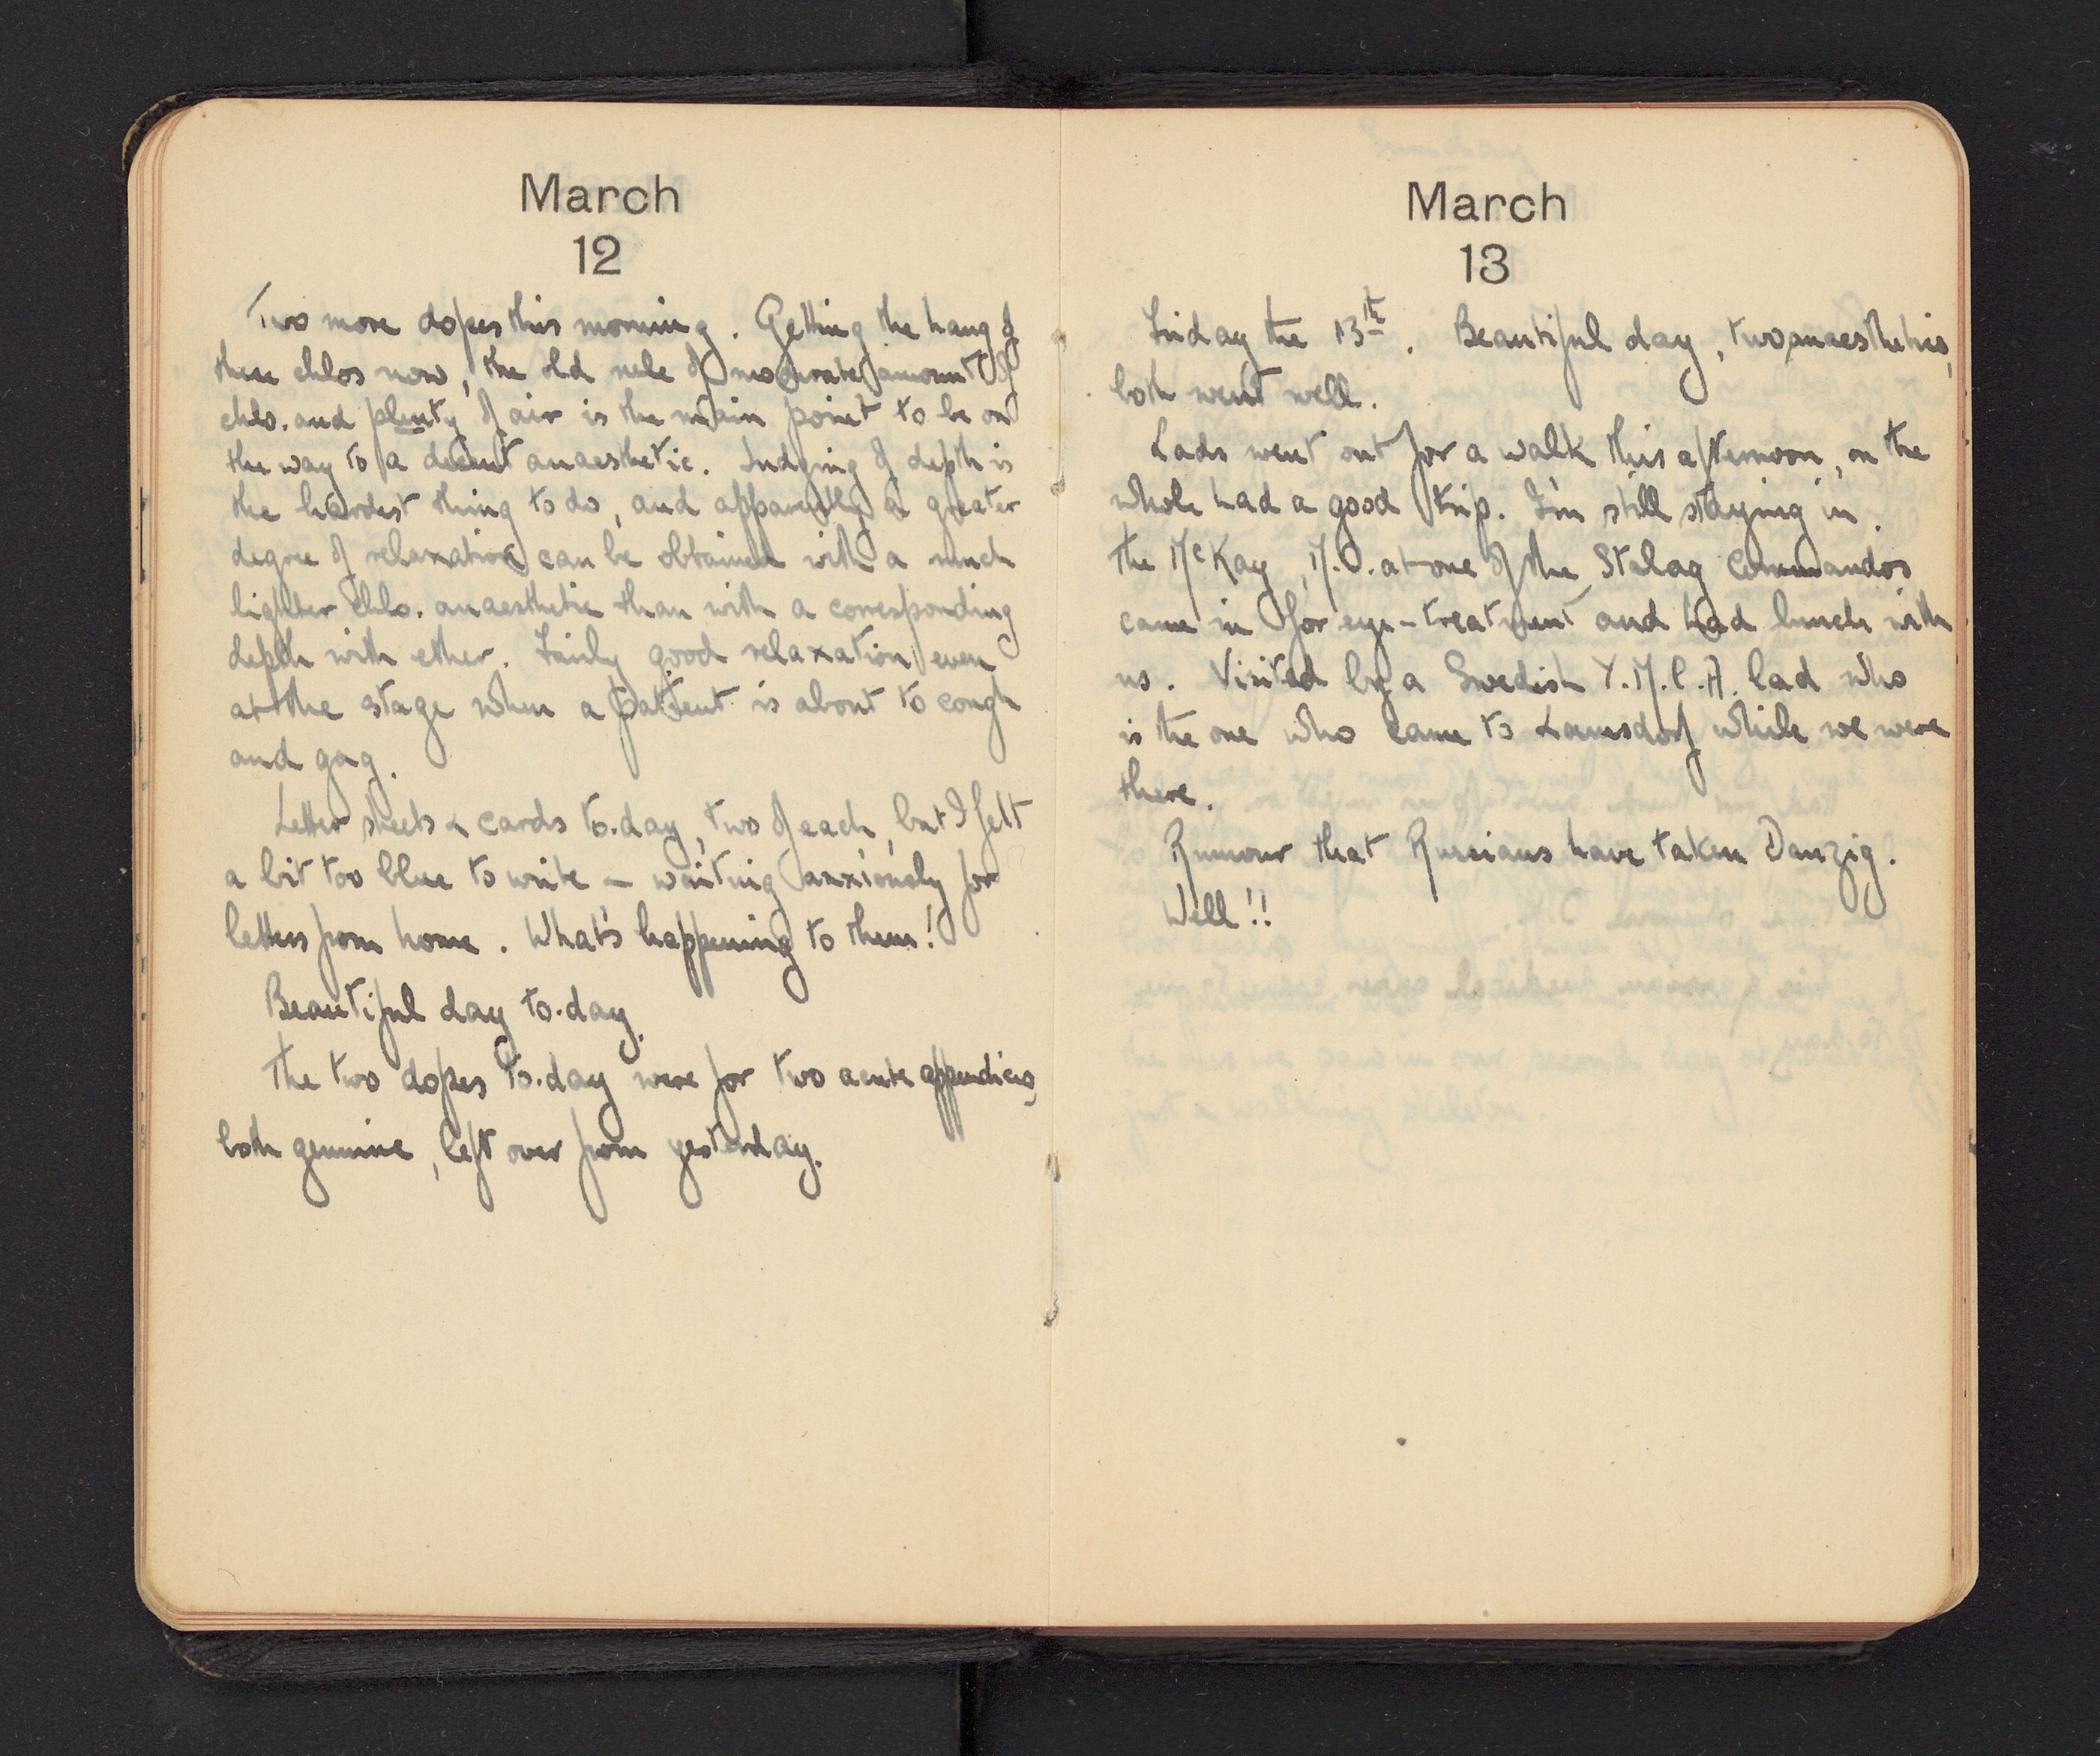 March
12
Two more dopes this morning. Getting the hang of
these chlos now, the old rule of moderate amount of
chlo. and plenty of air is the main point to be on
the way to a decent anaesthetic. Judging of depth is
the hardest thing to do, and apparently a greater
degree of relaxation can be obtained with a much
lighter chlo. anaesthetic than with a corresponding
depth with ether. Fairly good relaxation even
at the stage when a patient is about to cough
and gag.
Letter sheets & cards to-day, two of each, but I felt
a bit too blue to write – waiting anxiously for
letters from home. What's happening to them!
Beautiful day to-day.
The two dopes to-day were for two acute appendices,
both genuine, left over from yesterday.
March
13
Friday the 13th. Beautiful day, two anaesthetics,
both went well.
Lads went out for a walk this afternoon, on the
whole had a good trip. I'm still staying in.
The McKay, M.O. at one of the Stalag Commandos
came in for eye-treatment and had lunch with
us. Visited by a Swedish Y.M.C.A. lad who
is the one who came to Lamsdorf while we were
there.
Rumour that Russians have taken Danzig.
Well!!